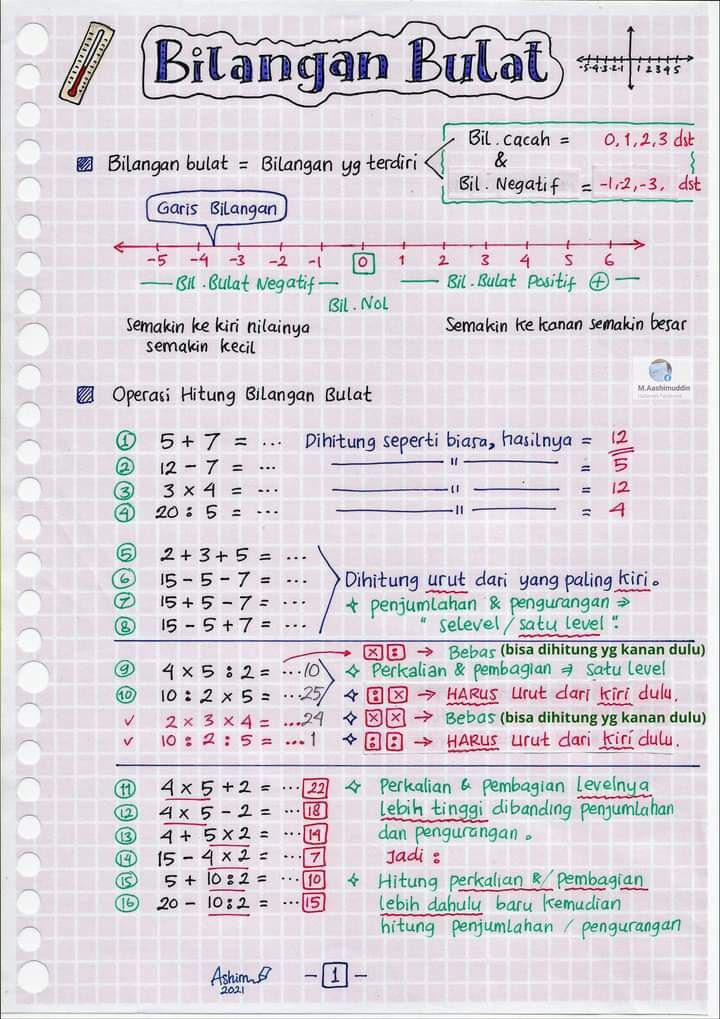 Bilangan Bulat
-5-4-3-2-1 1 2 3 4 5
Bilangan bulat = Bilangan yg terdiri
Bil. Cacah = 0, 1, 2, 3 dst
&
Bil. Negatif = -1, -2, -3, dst
Garis Bilangan
-5 -4 -3 -2 -1 0 1 2 3 4 5 6
Bil. Bulat Negatif
Bil. Nol
Bil. Bulat Positif +
Semakin ke kiri nilainya
semakin kecil
Semakin ke kanan semakin besar
M.Aashimuddin
Operasi Hitung Bilangan Bulat
1 5 + 7 = ... Dihitung seperti biasa, hasilnya = 12
2 12 - 7 = ... " = 5
3 3 x 4 = ... " = 12
4 20 : 5 = ... " = 4
5 2 + 3 + 5 = ...
6 15 - 5 - 7 = ...
7 15 + 5 - 7 = ...
8 15 - 5 + 7 = ...
Dihitung urut dari yang paling kiri.
penjumlahan & pengurangan ⇒
" selevel / satu level ".
x : → Bebas (bisa dihitung yg kanan dulu)
9 4 x 5 : 2 = ...10 Perkalian & pembagian ⇒ satu level
10 10 : 2 x 5 = ...25 : x → HARUS urut dari kiri dulu.
✓ 2 x 3 x 4 = ...24 x x → Bebas (bisa dihitung yg kanan dulu)
✓ 10 : 2 : 5 = ...1 : : → HARUS urut dari kiri dulu.
11 4 x 5 + 2 = ... 22
12 4 x 5 - 2 = ... 18
13 4 + 5 x 2 = ... 14
14 15 - 4 x 2 = ... 7
15 5 + 10 : 2 = ... 10
16 20 - 10 : 2 = ... 15
Perkalian & Pembagian levelnya
lebih tinggi dibanding penjumlahan
dan pengurangan.
Jadi :
Hitung perkalian & / Pembagian
lebih dahulu baru kemudian
hitung penjumlahan / pengurangan
Ashim
2021
- 1 -